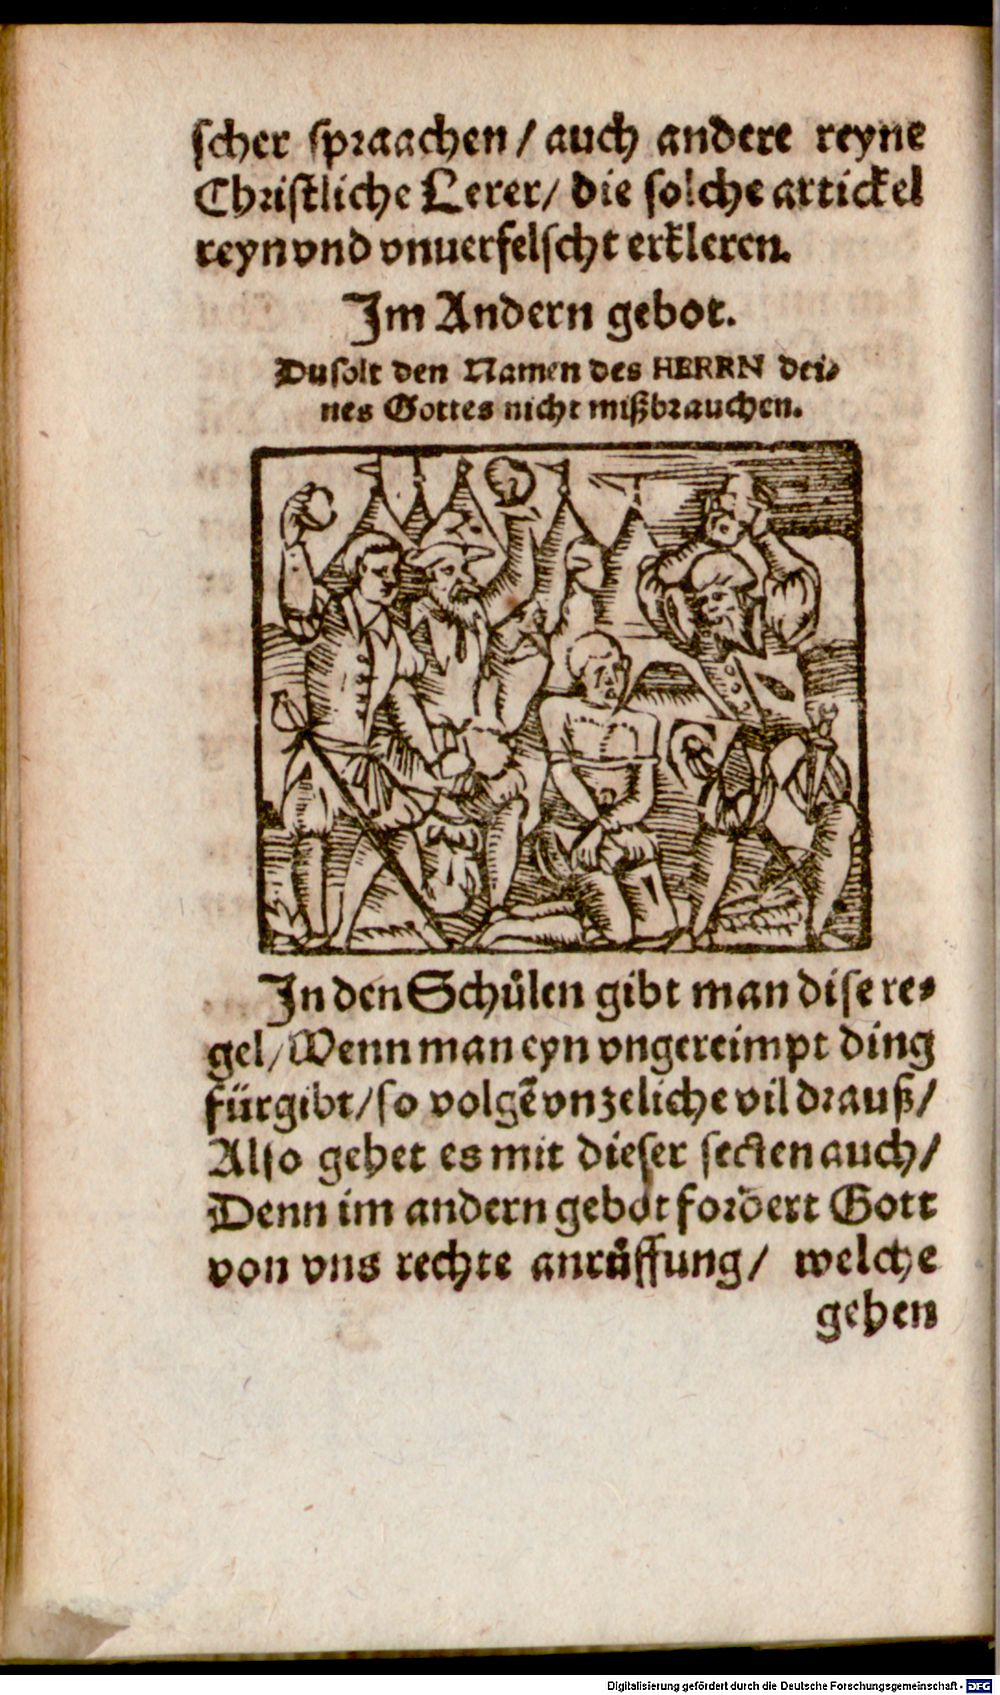 scher spraachen / auch andere reyne
Christliche Lerer / die solche artickel
reyn vnd vnuerfelscht erkleren.
Im Andern gebot.
Du solt den Namen des HERRN dei⸗
nes Gottes nicht mißbrauchen.
In den Schůlen gibt man dise re⸗
gel / Wenn man eyn vngereimpt ding
fürgibt / so volgẽ vnzeliche vil drauß /
Also gehet es mit dieser secten auch /
Denn im andern gebot fordert Gott
von vns rechte anrůffung / welche
gehen
Digitalisierung gefördert durch die Deutsche Forschungsgemeinschaft - DFG